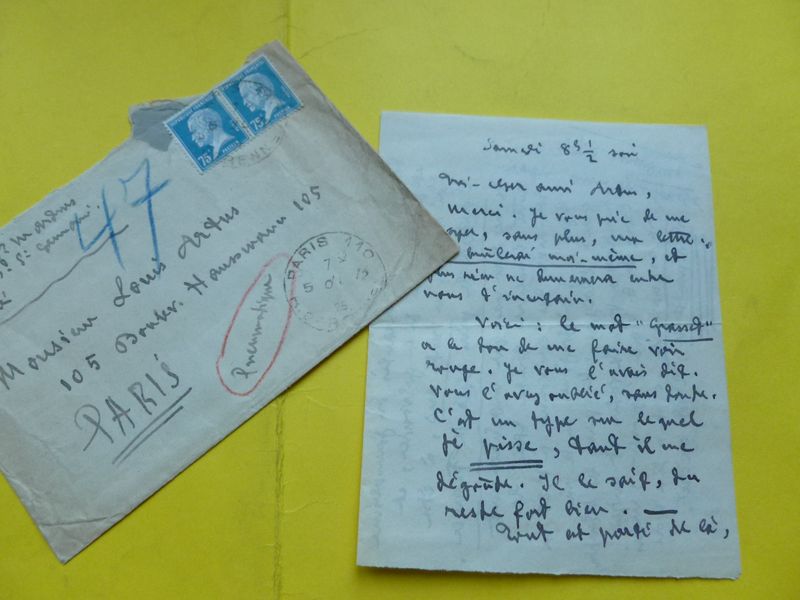 47
Monsieur Louis Artus
105 Boulev. Haussmann 105
PARIS
Pneumatique
PARIS 110
75c
75c
Samedi 8h 1/2 soir
Mon cher ami Artus,
Merci. Je vous prie de me
sans plus, ma lettre.
brûlerai moi-même, et
plus rien ne demeurera entre
nous d'incertain.
Voici : le mot "Grasset"
a le don de me faire voir
rouge. Je vous l'avais dit.
Vous l'avez oublié, sans doute.
C'est un type sur lequel
je pisse, tant il me
dégoûte. Il le sait, du
reste fort bien. —
Tout est parti de là,